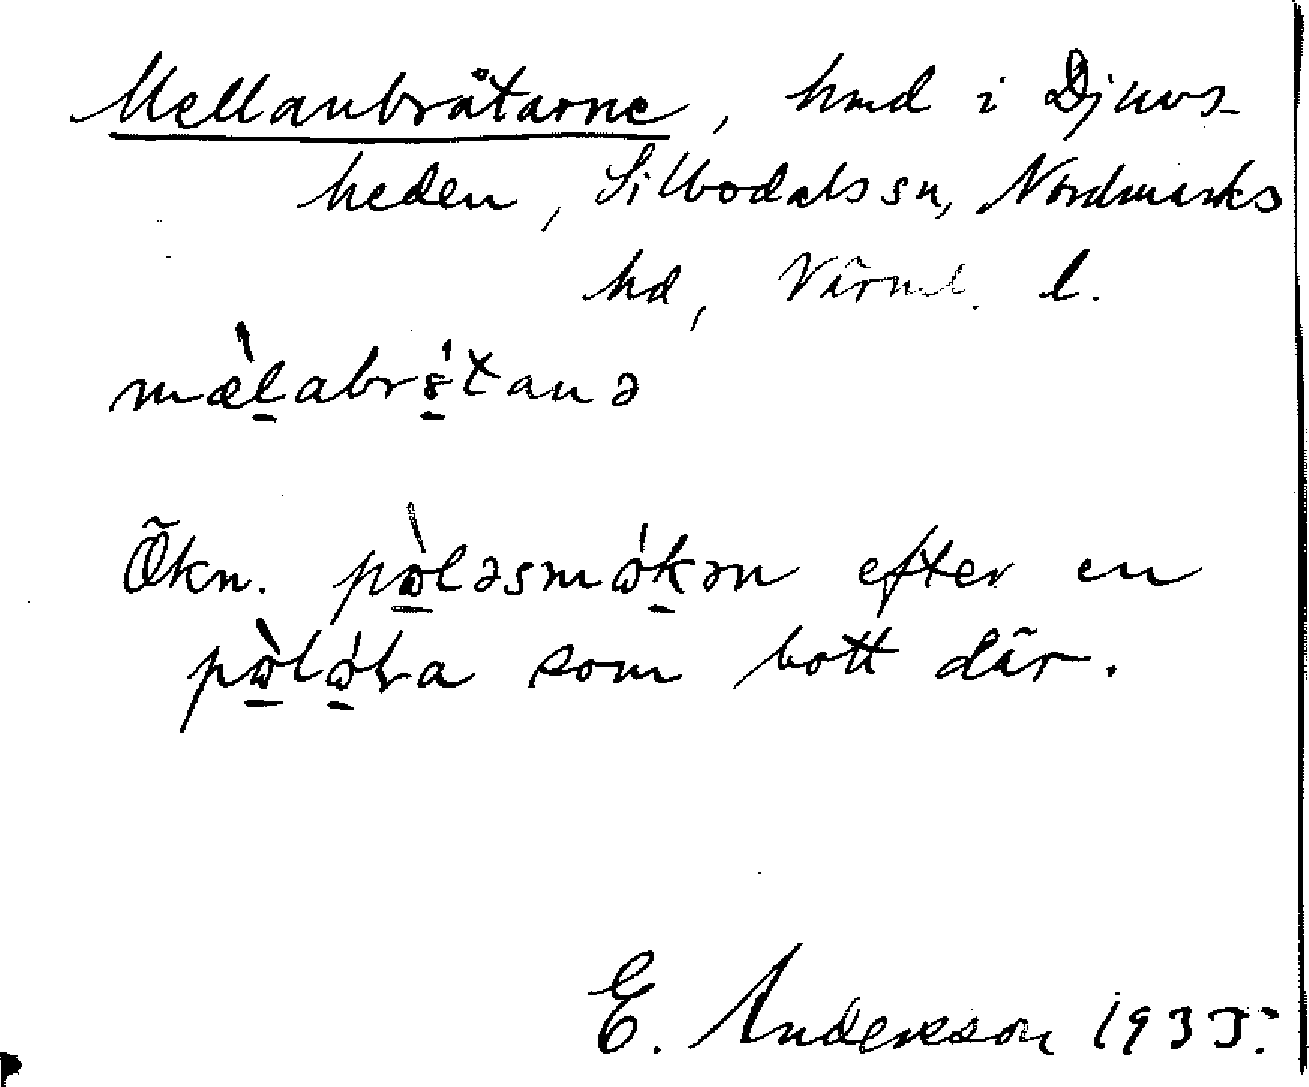 Mellanbråtarne, hmd i Djuvs-
heden, Silbodals sn, Nordmarks
hd, Värml. l.
mæ̀labr8́tanə
Ökn. pòləsmókən efter en
som bott där.
E. Andersson 1935.